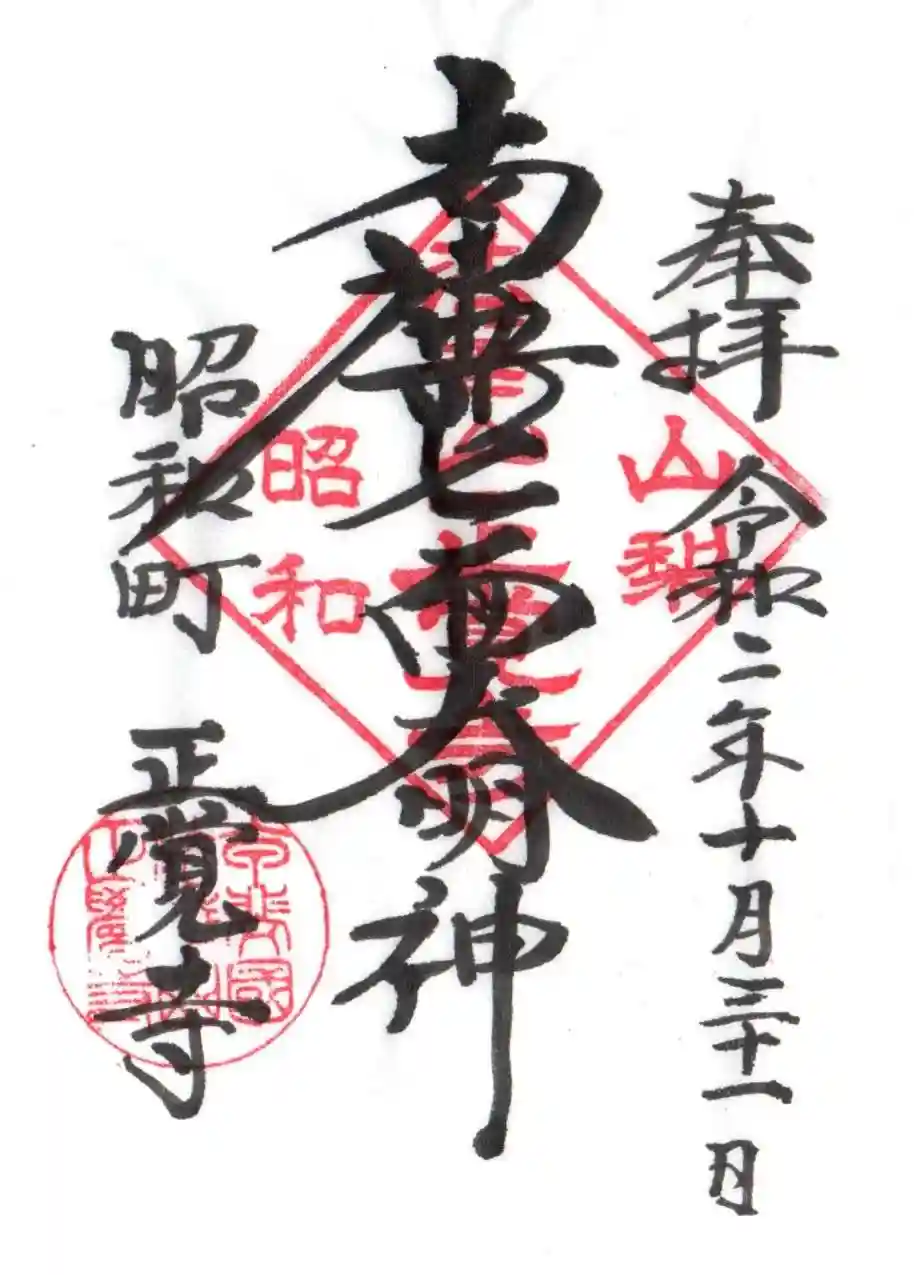 奉拝 令和二年十月三十一日
南無七面大明神
昭和町 正覚寺
山梨
昭和